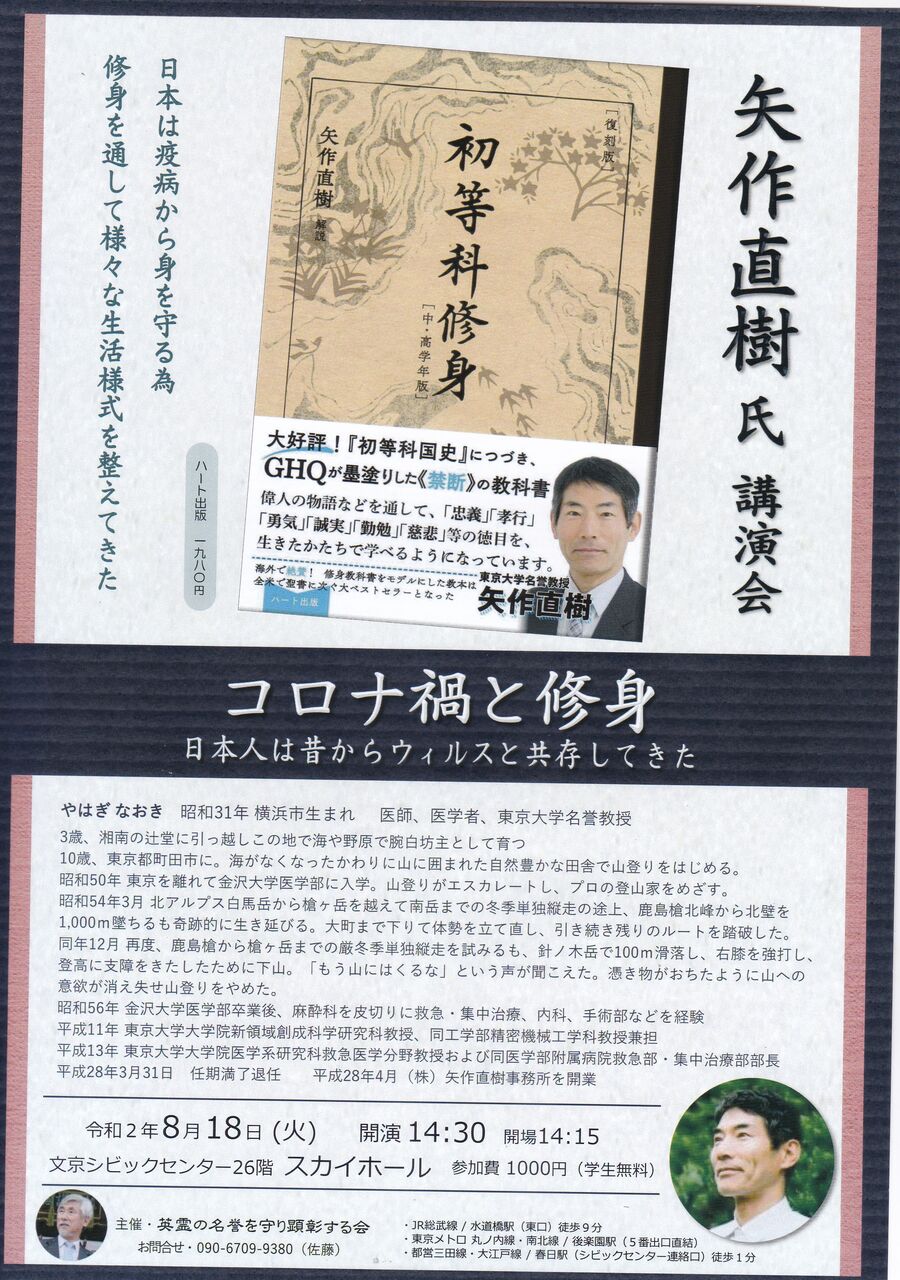 矢作直樹 氏 講演会
[復刻版]
初等科修身
[中・高学年版]
矢作直樹 解説
大好評！『初等科国史』につづき、
GHQが墨塗りした《禁断》の教科書
偉人の物語などを通して、「忠義」「孝行」
「勇気」「誠実」「勤勉」「慈悲」等の徳目を、
生きたかたちで学べるようになっています。
海外で絶賛！ 修身教科書をモデルにした教本は
全米で聖書に次ぐ大ベストセラーとなった
ハート出版
東京大学名誉教授
矢作直樹
ハート出版 一九八〇円
日本は疫病から身を守る為
修身を通して様々な生活様式を整えてきた
コロナ禍と修身
日本人は昔からウィルスと共存してきた
やはぎ なおき 昭和31年 横浜市生まれ 医師、医学者、東京大学名誉教授
3歳、湘南の辻堂に引っ越しこの地で海や野原で腕白坊主として育つ
10歳、東京都町田市に。海がなくなったかわりに山に囲まれた自然豊かな田舎で山登りをはじめる。
昭和50年 東京を離れて金沢大学医学部に入学。山登りがエスカレートし、プロの登山家をめざす。
昭和54年3月 北アルプス白馬岳から槍ヶ岳を越えて南岳までの冬季単独縦走の途上、鹿島槍北峰から北壁を
1,000m墜ちるも奇跡的に生き延びる。大町まで下りて体勢を立て直し、引き続き残りのルートを踏破した。
同年12月 再度、鹿島槍から槍ヶ岳までの厳冬季単独縦走を試みるも、針ノ木岳で100m滑落し、右膝を強打し、
登高に支障をきたしたために下山。「もう山にはくるな」という声が聞こえた。憑き物がおちたように山への
意欲が消え失せ山登りをやめた。
昭和56年 金沢大学医学部卒業後、麻酔科を皮切りに救急・集中治療、内科、手術部などを経験
平成11年 東京大学大学院新領域創成科学研究科教授、同工学部精密機械工学科教授兼担
平成13年 東京大学大学院医学系研究科救急医学分野教授および同医学部附属病院救急部・集中治療部部長
平成28年3月31日 任期満了退任 平成28年4月（株）矢作直樹事務所を開業
令和２年8月18日 (火) 開演 14:30 開場14:15
文京シビックセンター26階 スカイホール 参加費 1000円（学生無料）
主催・英霊の名誉を守り顕彰する会
お問合せ・090-6709-9380（佐藤）
・JR総武線 / 水道橋駅（東口）徒歩９分
・東京メトロ 丸ノ内線・南北線 / 後楽園駅（５番出口直結）
・都営三田線・大江戸線 / 春日駅（シビックセンター連絡口）徒歩１分